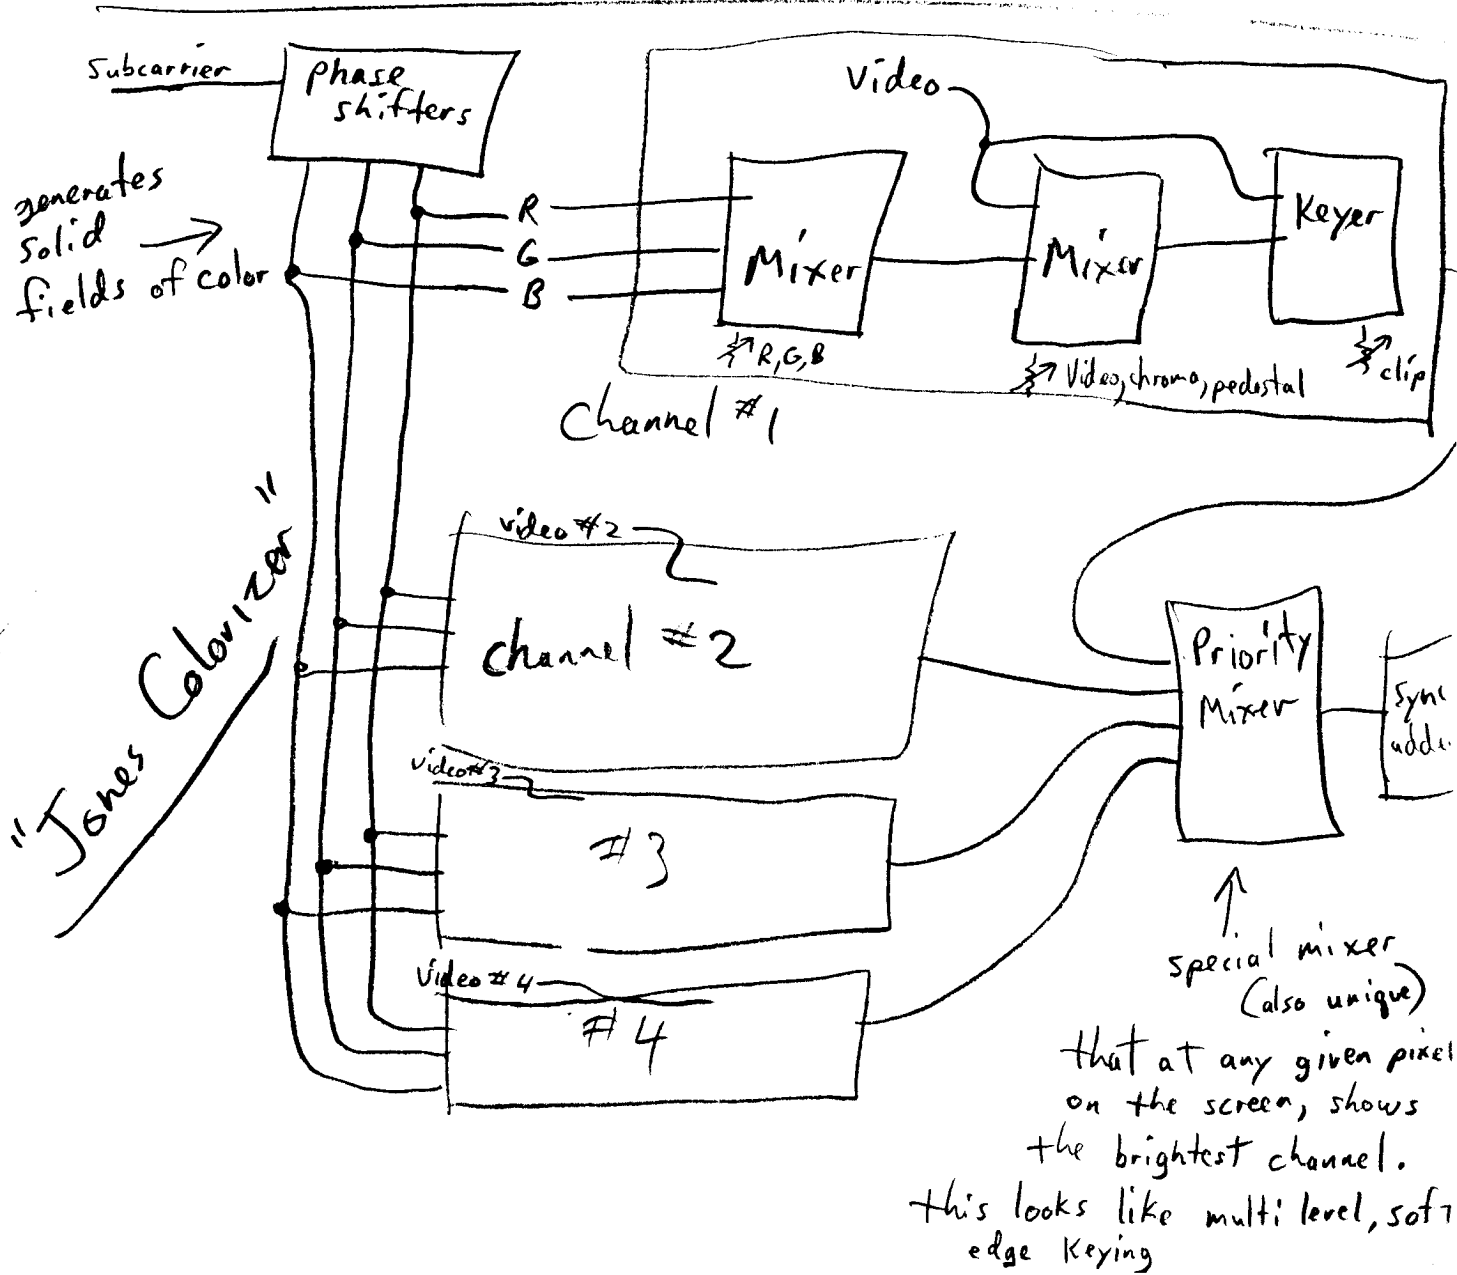 Subcarrier
phase
shifters
generates
solid
fields of color
R
G
B
Video
Mixer
Mixer
Keyer
R, G, B
Video, chroma, pedestal
clip
Channel #1
"Jones Colorizer"
video #2
Channel #2
video #3
#3
Video #4
#4
Priority
Mixer
Sync
adde
special mixer
(also unique)
that at any given pixel
on the screen, shows
the brightest channel.
this looks like multi level, soft
edge Keying